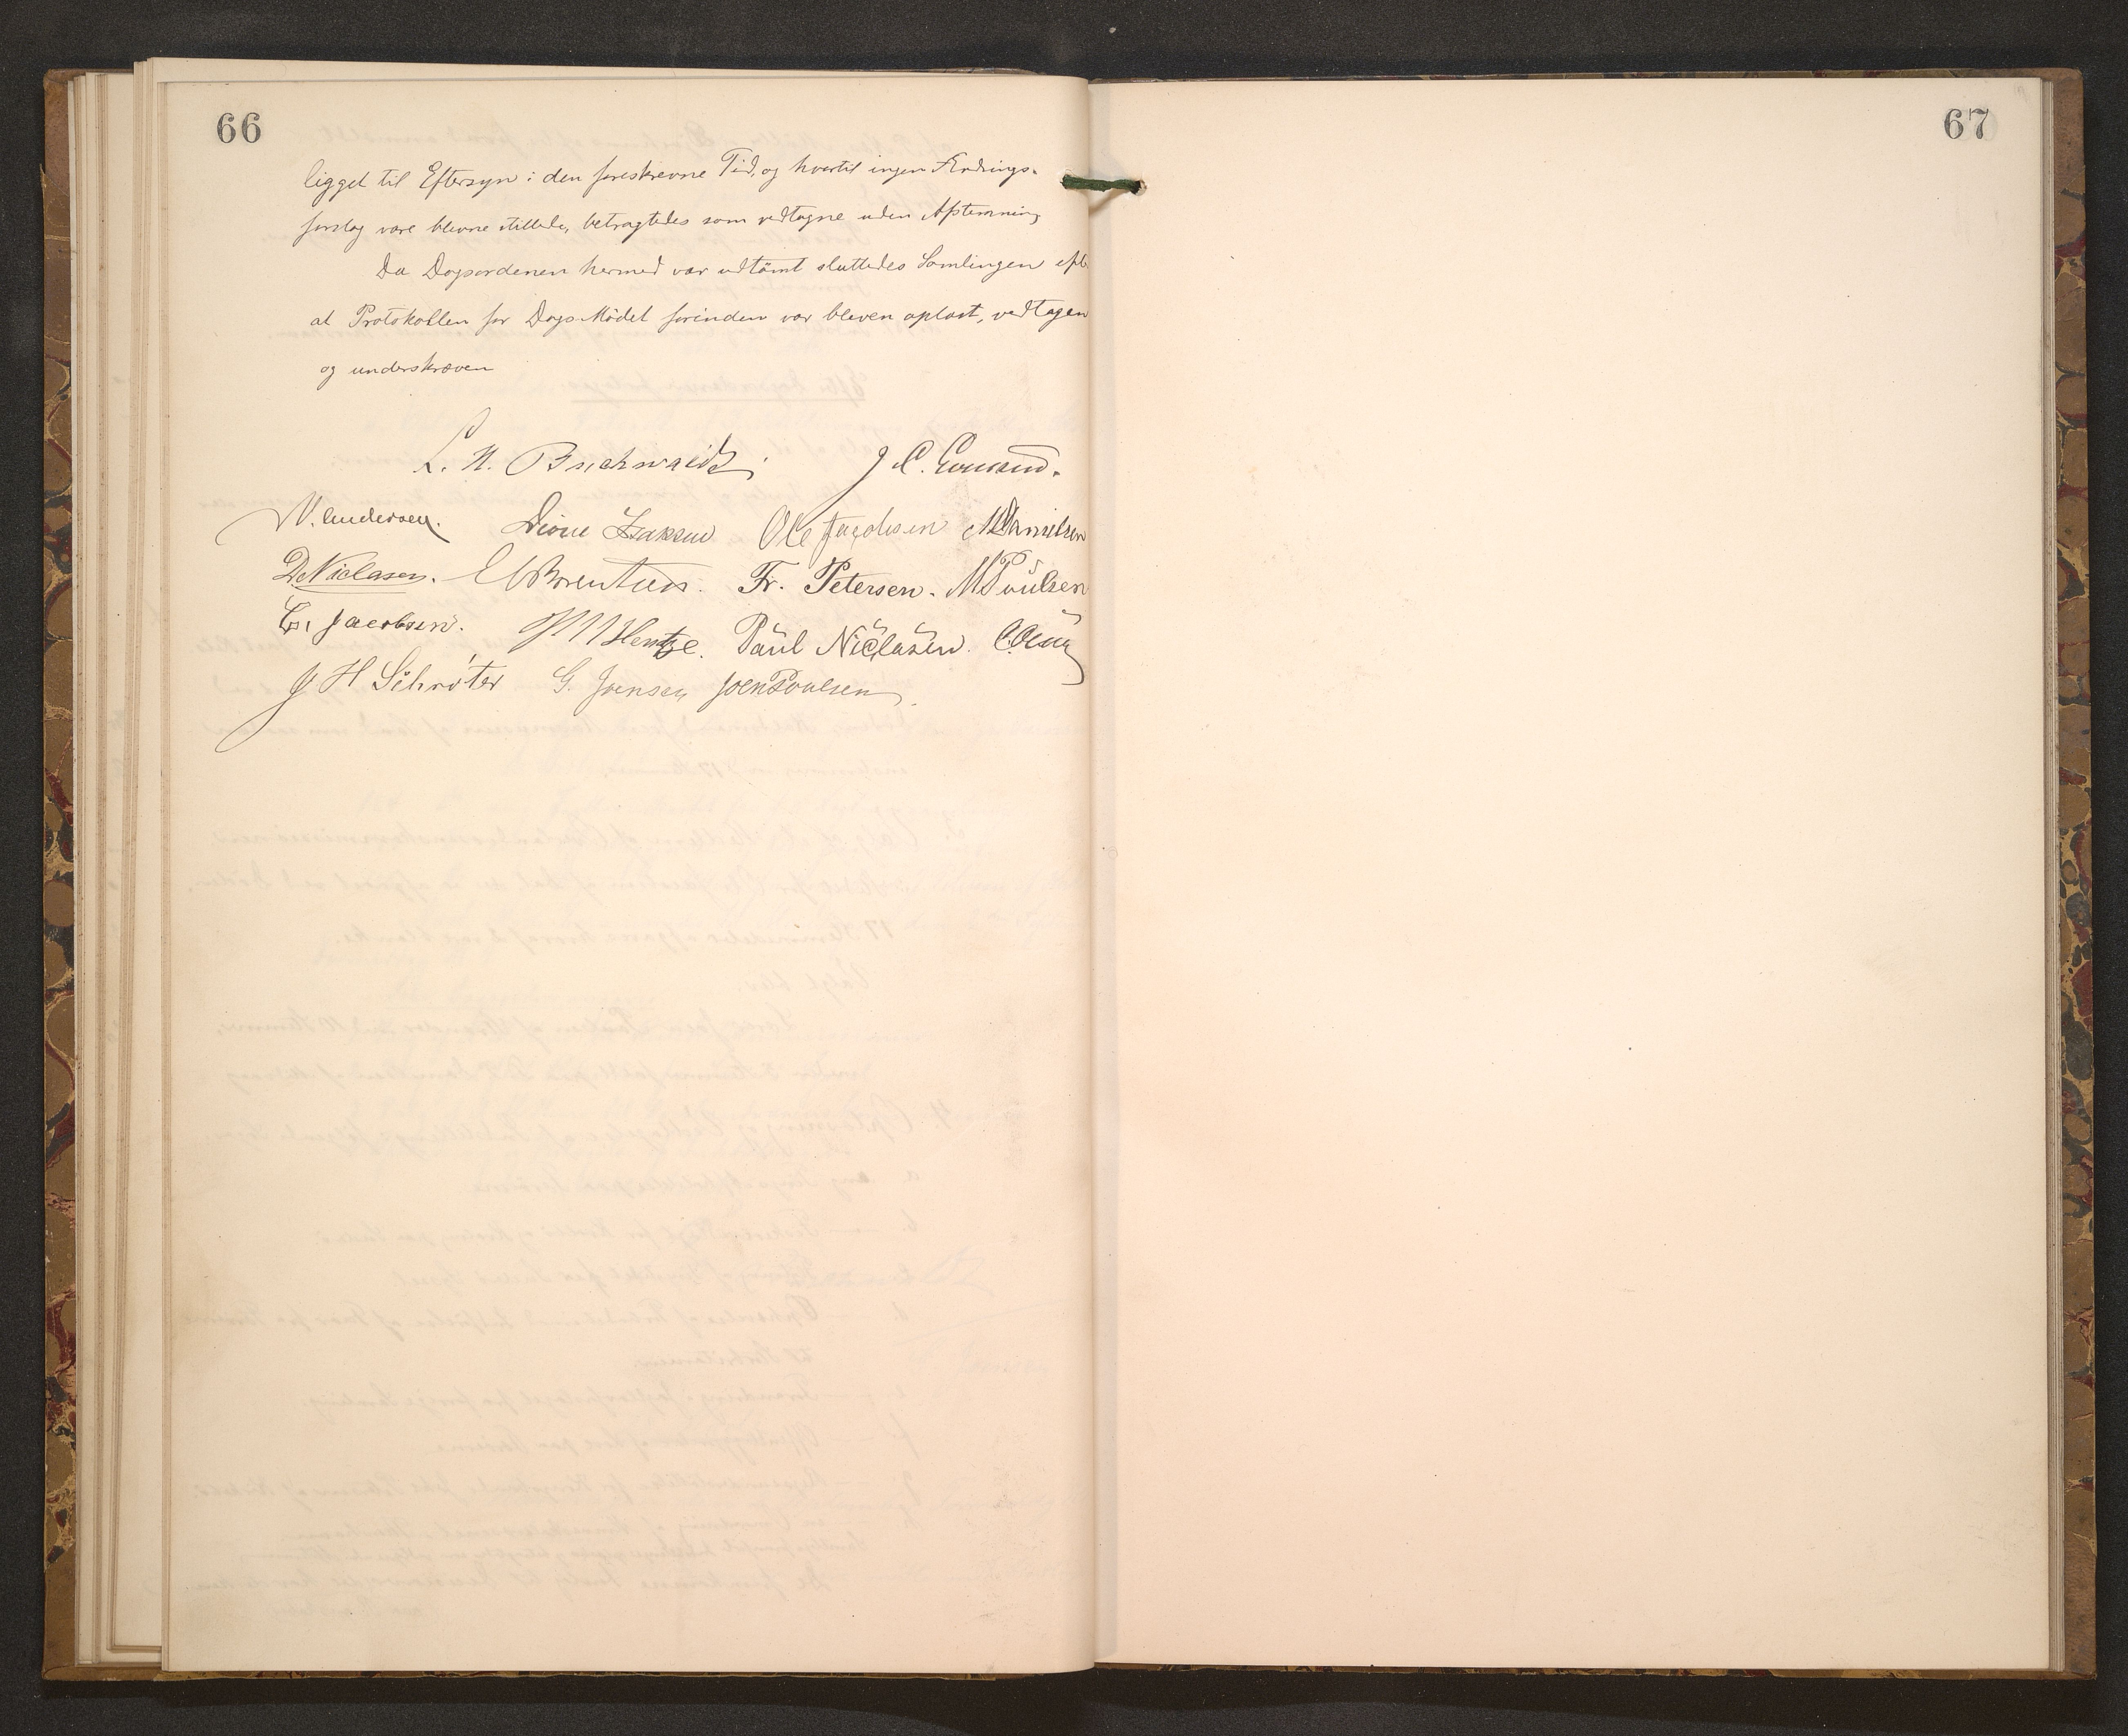 66
67
ligget til Eftersyn i den foreskrevne Tid, og hvortil ingen Ændrings-
forslag vare blevne stillede, betragtedes som vedtagne uden Afstemning
Da Dagsordenen hermed var udtömt sluttedes Samlingen eft
at Protokollen for Dags Mödet forinden var bleven oplæst, vedtagen
og underskreven
L. N. Buchwaldt. J. C.
W. Andersen. Ole Jacobsen M Danielsen
D. Niclasen. Fr. Petersen. M Poulsen
Jacobsen. Hentze. Paul Niclasen.
J H Schröter G. Joensen Joen Poulsen